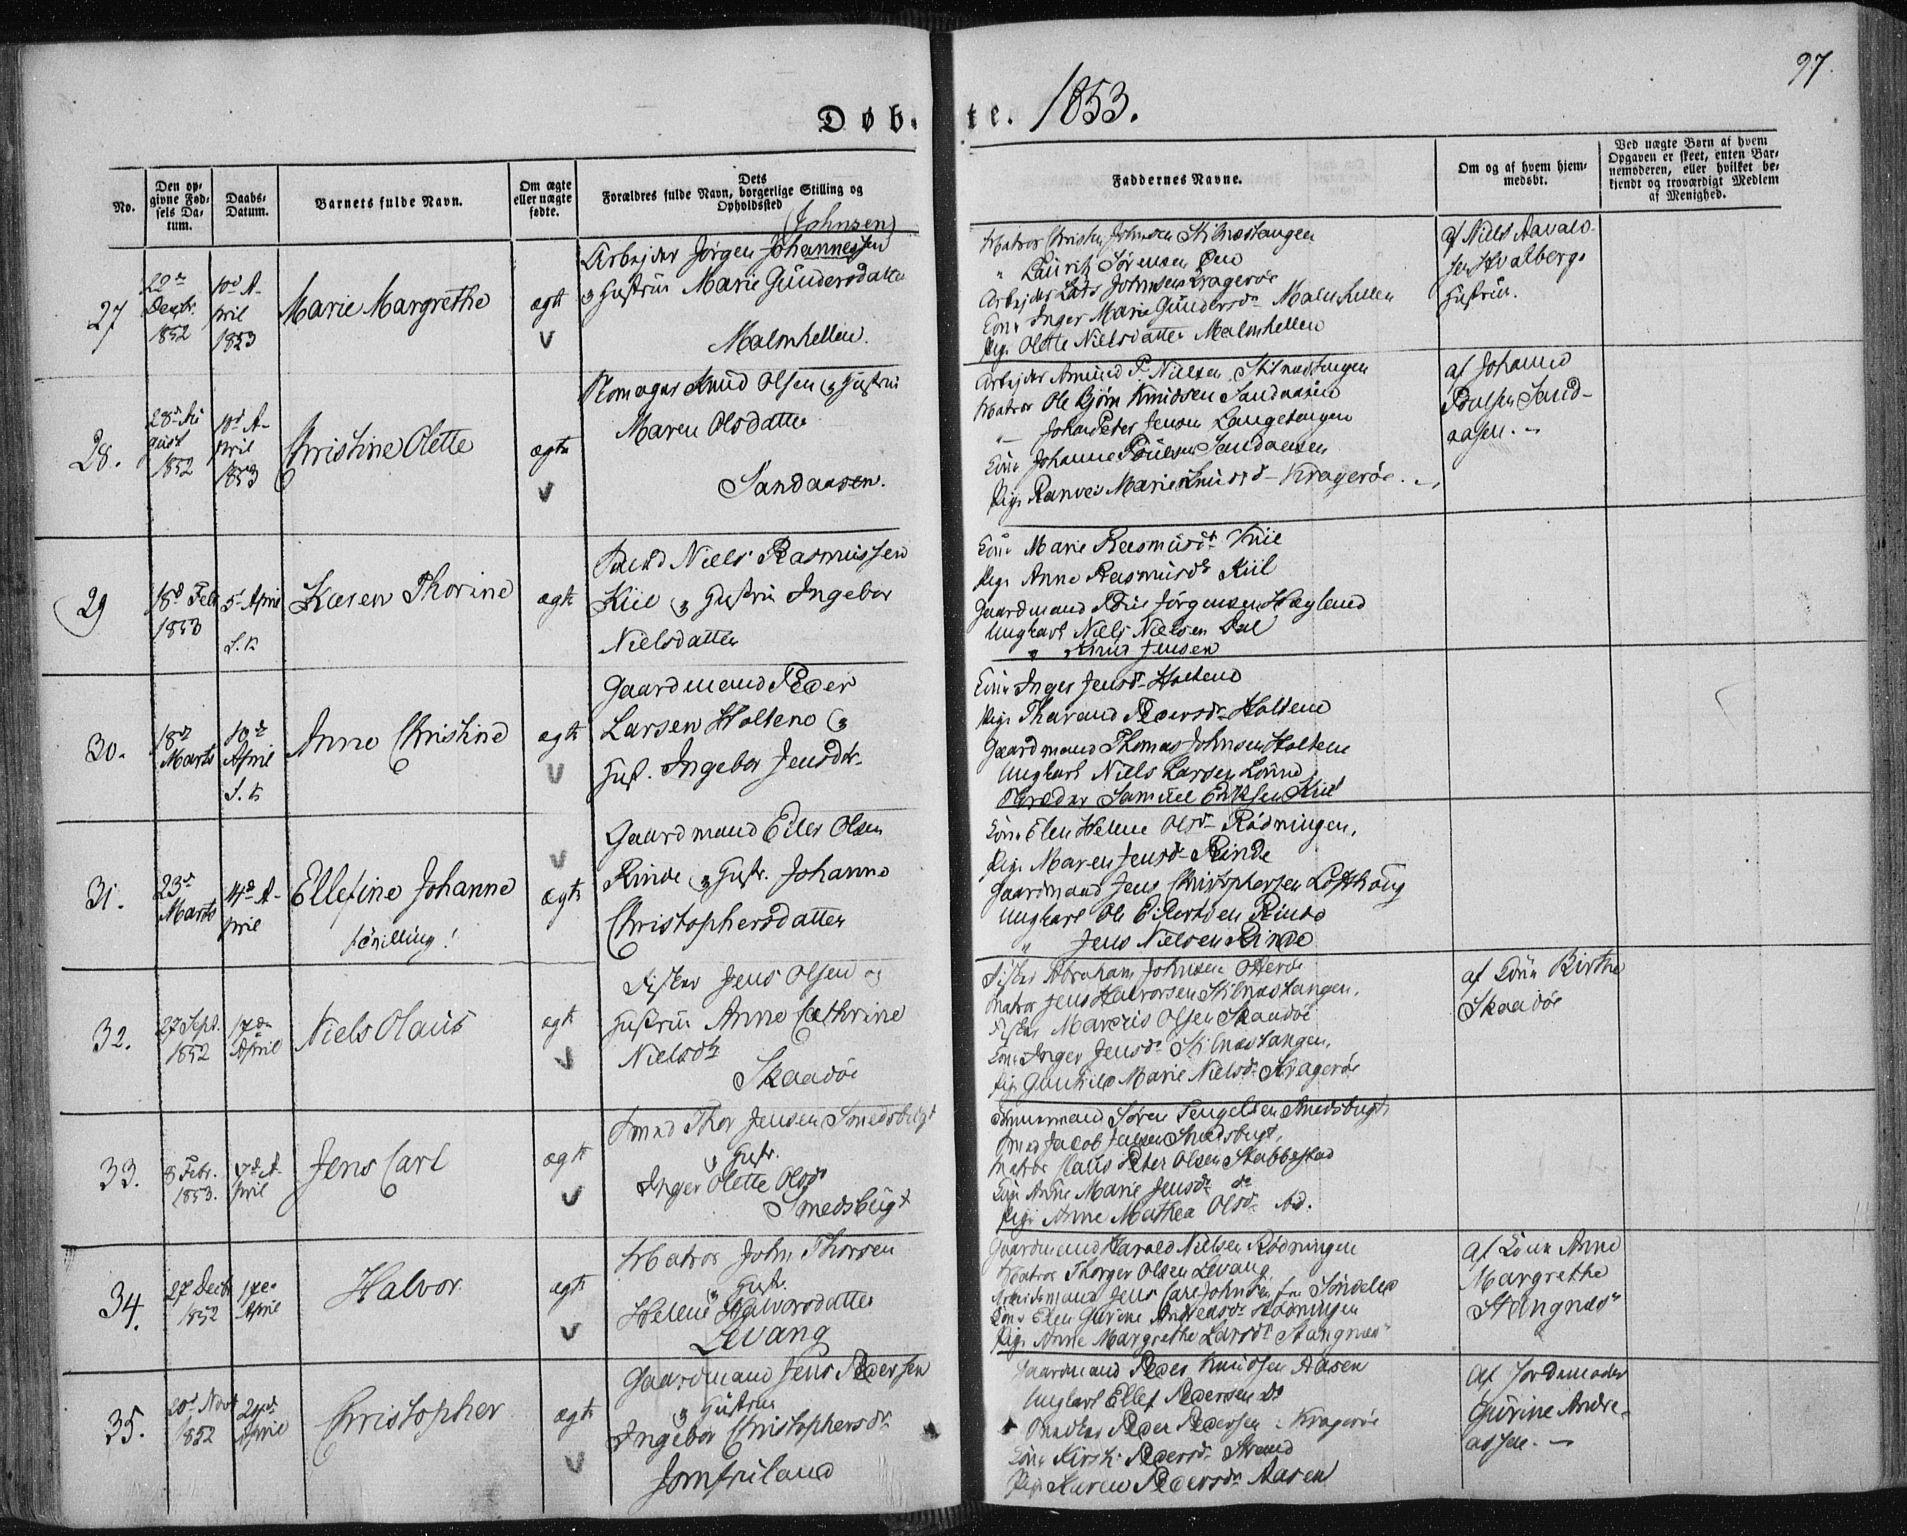 97.
Døb-te. 1853.
No.
Den op-
givne Fød-
sels Da-
tum.
Daabs-
Datum.
Barnets fulde Navn.
Om ægte
eller uægte
fødte.
Dets
Forældres fulde Navn, borgerlige Stilling og
Opholdssted
Faddernes Navne.
Om og af hvem hjem-
medøbt.
Ved uægte Børn af hvem
Opgaven er skeet, enten Bar-
nemoderen, eller hvilket be-
kjendt og troværdigt Medlem
af Menighed.
27
1852
10de A-
pril
1853
Marie Margrethe
ægte
(Johnsen)
Arbejder Jørgen Johannessen
og Hustrue Marie Gundersdatter
Malmhellen.
Matros Christen Johnsen Stilnestangen
" Lauritz Sørensen
Arbejder Lars Johnsen Kragerøe
Kone Inger Marie Gundersdr Malmhellen
Pige Olette Nielsdatter Malmhellen
af Niels Aavals-
sen Hvalbergs
Hustrue.
28.
28de Au-
gust
1852
10de A-
pril
1853
Christine Olette
ægte
Knud Olsen og Hustrue
Maren Olsdatter
Sandaasen.
Arbejder Amund P. Nielsen Stilnestangen
Matros Ole Bjørn Knudsen Sandaasen
— Johan Peder Jensen Langetangen
Kone Johanne Poulsen Sandaasen
Pige Ranvei Marie Knudsd. Kragerøe.
af Johanne
Poulsen Sand-
aasen.
29
18de Feb.
1853
5te April
S. k.
Karen Thorine
ægte
Niels Rasmussen
Kiil og Hustrue Ingebor
Nielsdatter
Kone Marie Rasmusdr Kiil
Pige Anne Rasmusdr Kiil
Gaardmand Poul Jørgensen Haylund
Ungkarl Niels Nielsen Dal
" Knud Jensen
30.
18de
Marts
10de
April
S. k.
Anne Christine
ægte
Gaardmand Peder
Larsen Holtene og
Hust. Ingebor Jensdtr.
Kone Inger Jensdr Holtene
Pige Tharand Pedersdr Holtene
Gaardmand Thomas Johnsen Holtene
Ungkarl Niels Larsen Lønne
Samuel Eriksen Kiil
31.
23de
Marts
14de A-
pril
Ellefine Johanne
tvilling!
ægte
Gaardmand Eiler Olsen
Rinde og Hustr. Johanne
Christophersdatter
Kone Elen Helene Olsdr Rødningen,
Pige Maren Jensdr Rinde
Gaardmand Jens Christophersen Lofthaug
Ungkarl Ole Eilertsen Rinde
" Jens Nielsen Rinde
32.
27 Sept.
1852
17de
April
Niels Olaus
ægte
Fisker Jens Olsen og
Hustrue Anne Cathrine
Nielsdtr
Skaadøe
Fisker Abraham Johnsen Otterøe
Matros Jens Halvorsen Stilnestangen,
Fisker Marcus Olsen Skaadøe
Kone Inger Jensdr Stilnestangen,
Pige Gunhild Marie Nielsdr Kragerøe
af Kone Birthe
Skaadøe
33.
8 Febr.
1853.
17de A-
pril
Jens Carl
ægte
Smed Thor Jensen Smedsbugt
og Hustr.
Inger Olette Olsdr
Smedsbugt
Tømmermand Søren Tengelsen Smedsbugt,
Smed Jacob Jensen Smedsbugt,
Matros Claus Peter Olsen Stabbestad
Kone Anne Marie Jensdr do
Pige Anne Mathea Olsdr Ad.
34.
27 Decbr
1852
17de
April
Halvor
ægte
Matros John Thorsen
og Hustr.
Helene Halvorsdatter
Levang
Gaardmand Harald Nielsen Rødningen
Matros Thorger Olsen Levang
Arbeidsmand Jens Carl Johnsen fra Søndeled
Kone Elen Gurine Andreasdr Rødningen
Pige Anne Margrethe Larsdr Stangnæs
af Kone Anne
Margrethe
Stangnæs
35.
20de Novbr
1852
24de
April
Christopher
ægte
Gaardmand Jens Pedersen
og Hustrue
Ingebor Christophersdr
Jomfruland
Gaardmand Peder Knudsen Aasen
Ungkarl Ellef Pedersen do
Peder Pedersen i Kragerøe
Kone Kirsti Pedersdr Strand
Pige Karen Pedersdr Aasen
Af Jordemoder
Gurine Andre-
assen.